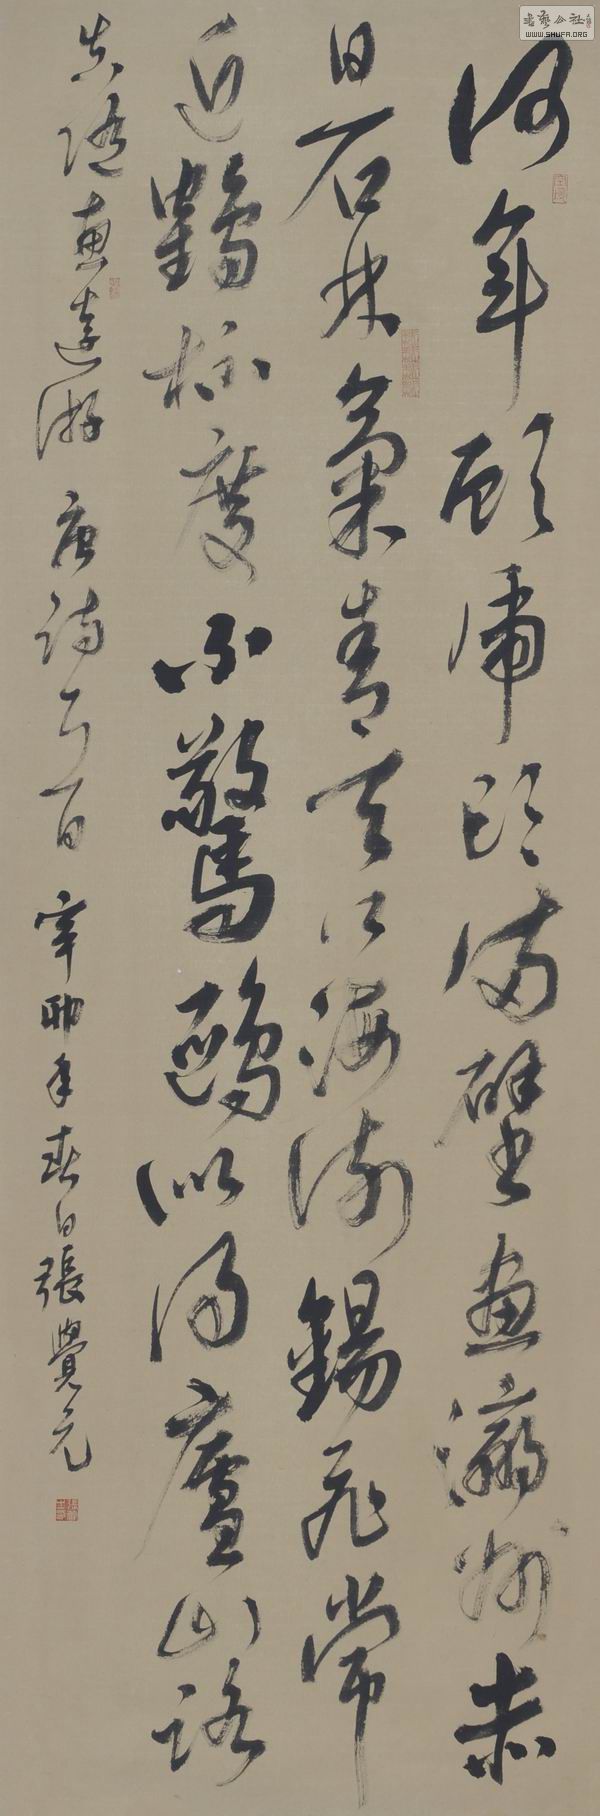 書藝公社
WWW.SHUFA.ORG
何年顧虎頭滿壁畫瀛州赤
日石林氣青天江海流錫飛常
近鶴杯度不驚鷗似得廬山路
真隨惠遠游 唐詩三百 辛卯年春日張覺元